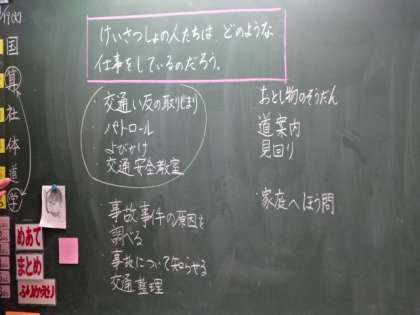 けいさつしょの人たちは どのような
仕事をしているのだろう。
・交通い反の取りしまり
・パトロール
・よびかけ
・交通安全教室
おとし物のそうだん
道案内
見回り
家庭へほう問
・事故事件の原因を
調べる
・事故について知らせる
交通整理
国
算
社
体
道
学
めあて
まとめ
ふりかえり